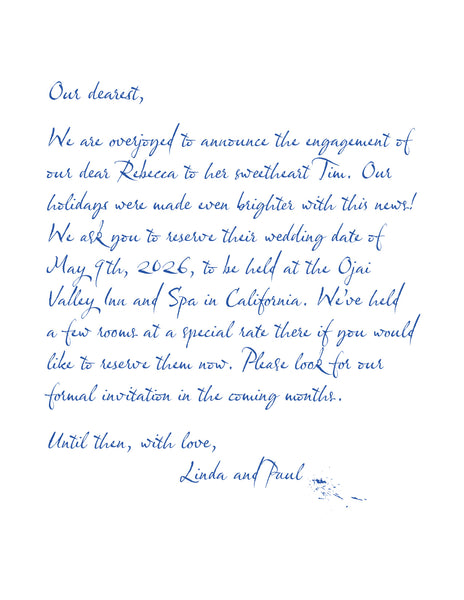 Our dearest,
We are overjoyed to announce the engagement of
our dear Rebecca to her sweetheart Tim. Our
holidays were made even brighter with this news!
We ask you to reserve their wedding date of
May 9th, 2026, to be held at the Ojai
Valley Inn and Spa in California. We've held
a few rooms at a special rate there if you would
like to reserve them now. Please look for our
formal invitation in the coming months.
Until then, with love,
Linda and Paul